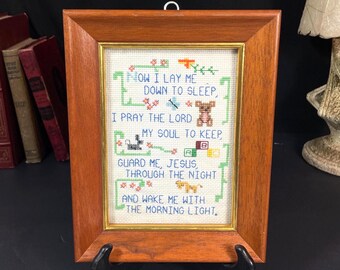 NOW I LAY ME
DOWN TO SLEEP,
I PRAY THE LORD
MY SOUL TO KEEP,
GUARD ME, JESUS,
THROUGH THE NIGHT
AND WAKE ME WITH
THE MORNING LIGHT.